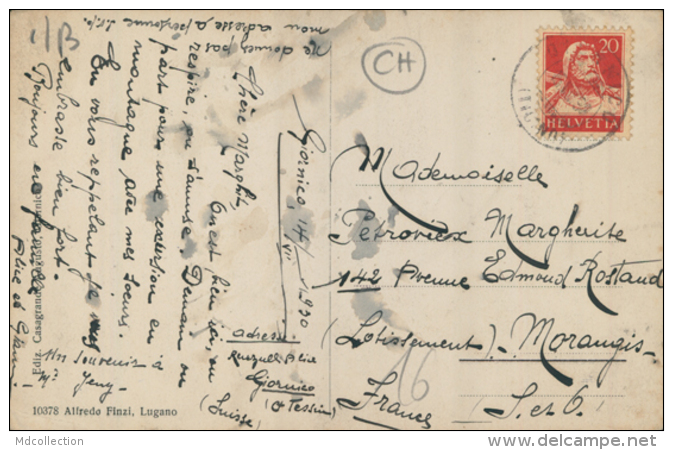 ne donnes pas
mon adresse, a personne S.v.p.
Giornico, 14/VII 1930
Chère Marghit.
On est bien ici, on
respire, on s'amuse. Demain on
part pour une excursion en
montagne avec mes soeurs.
En vous rappelant je vous
embrasse bien fort.
Bonjours en famille
Alice et
Un souvenir à
Mr Jeny
adresse
Alice
Giornico
(Ct Tessin)
(Suisse)
CH
20
HELVETIA
Mademoiselle
Petrovićx Margherite
142 Avenue Edmond Rostand
(Lotissement) - Morangis -
France S. et O.
16
Ediz. Casagrande Augusto, Giornico
10378 Alfredo Finzi, Lugano
Mdcollection
delcampe.net